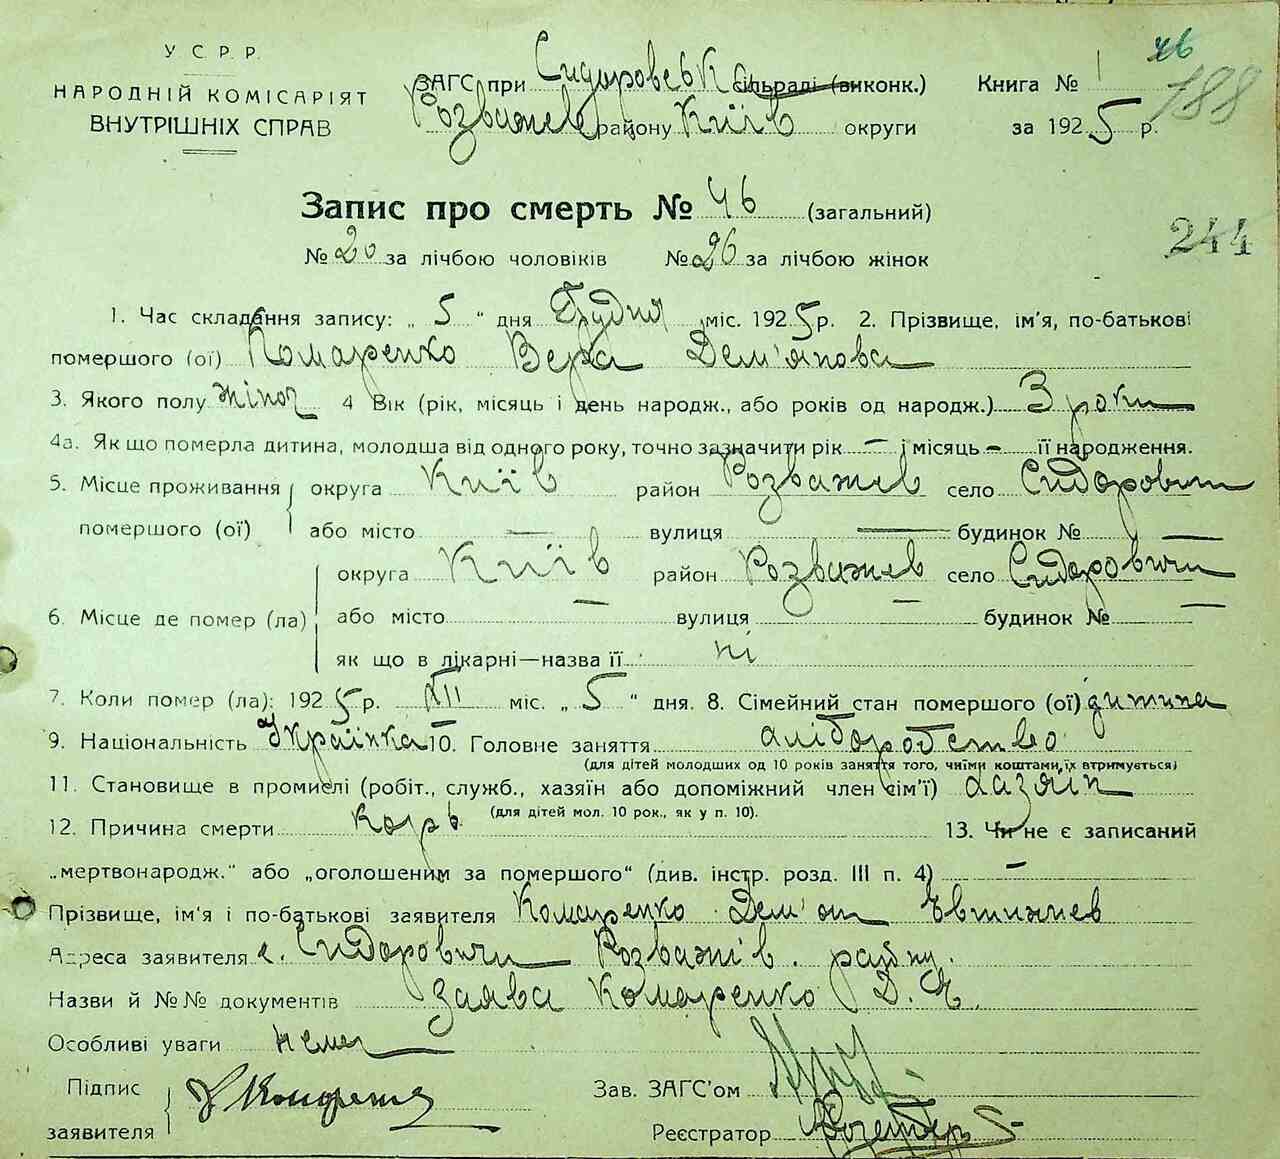 У С Р Р.
НАРОДНІЙ КОМІСАРІЯТ
ВНУТРІШНІХ СПРАВ
ЗАГС при Сидоровськ сільраді (виконк.)
Розважев району Київ округи
Книга № 1
за 1925 р.
46
188
Запис про смерть № 46 (загальний)
№ 20 за лічбою чоловіків № 26 за лічбою жінок
244
1. Час складання запису: „ 5 “ дня Грудня міс. 1925 р. 2. Прізвище, ім'я, по-батькові
помершого (ої) Комаренко Вера Дем'янова
3. Якого полу жіноч 4 Вік (рік, місяць і день народж., або років од народж.) 3 роки
4а. Як що померла дитина, молодша від одного року, точно зазначити рік – і місяць – її народження.
5. Місце проживання округа Київ район Розважев село Сидоровичи
помершого (ої) або місто — вулиця — будинок № —
округа Київ район Розважев село Сидоровичи
6. Місце де помер (ла) або місто — вулиця — будинок № —
як що в лікарні—назва її ні
7. Коли помер (ла): 1925 р. XII міс. „ 5 “ дня. 8. Сімейний стан помершого (ої) дитина
9. Національність Українка 10. Головне заняття хліборобство
(для дітей молодших од 10 років заняття того, чиїми коштами їх втримується)
11. Становище в промислі (робіт., служб., хазяїн або допоміжний член сім'ї) хазяїн
(для дітей мол. 10 рок., як у п. 10).
12. Причина смерти корь 13. Чи не є записаний
„мертвонародж.“ або „оголошеним за помершого“ (див. інстр. розд. III п. 4) –
Прізвище, ім'я і по-батькові заявителя Комаренко Дем'ян Євтихиев
Адреса заявителя с. Сидоровичи Розважів. району.
Назви й №№ документів заява Комаренко Д. Є.
Особливі уваги нема
Підпис
заявителя
Зав. ЗАГС'ом
Реєстратор